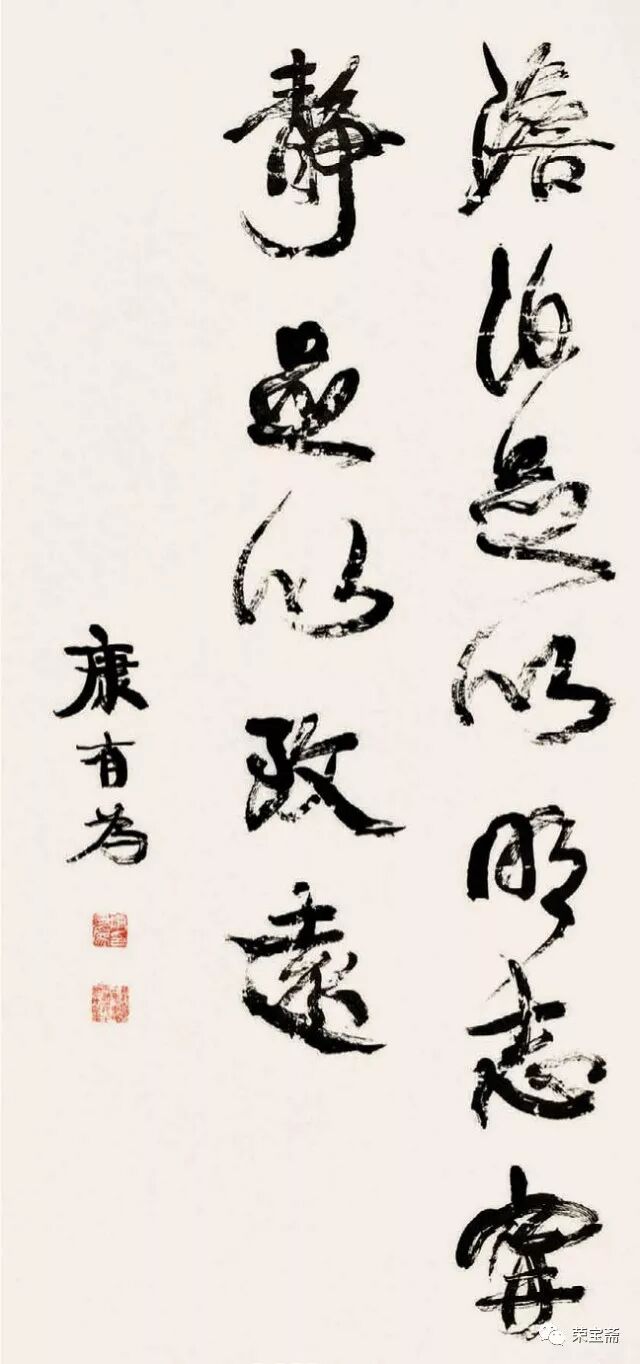 澹泊足以明志寧
靜足以致遠
康有為
荣宝斋